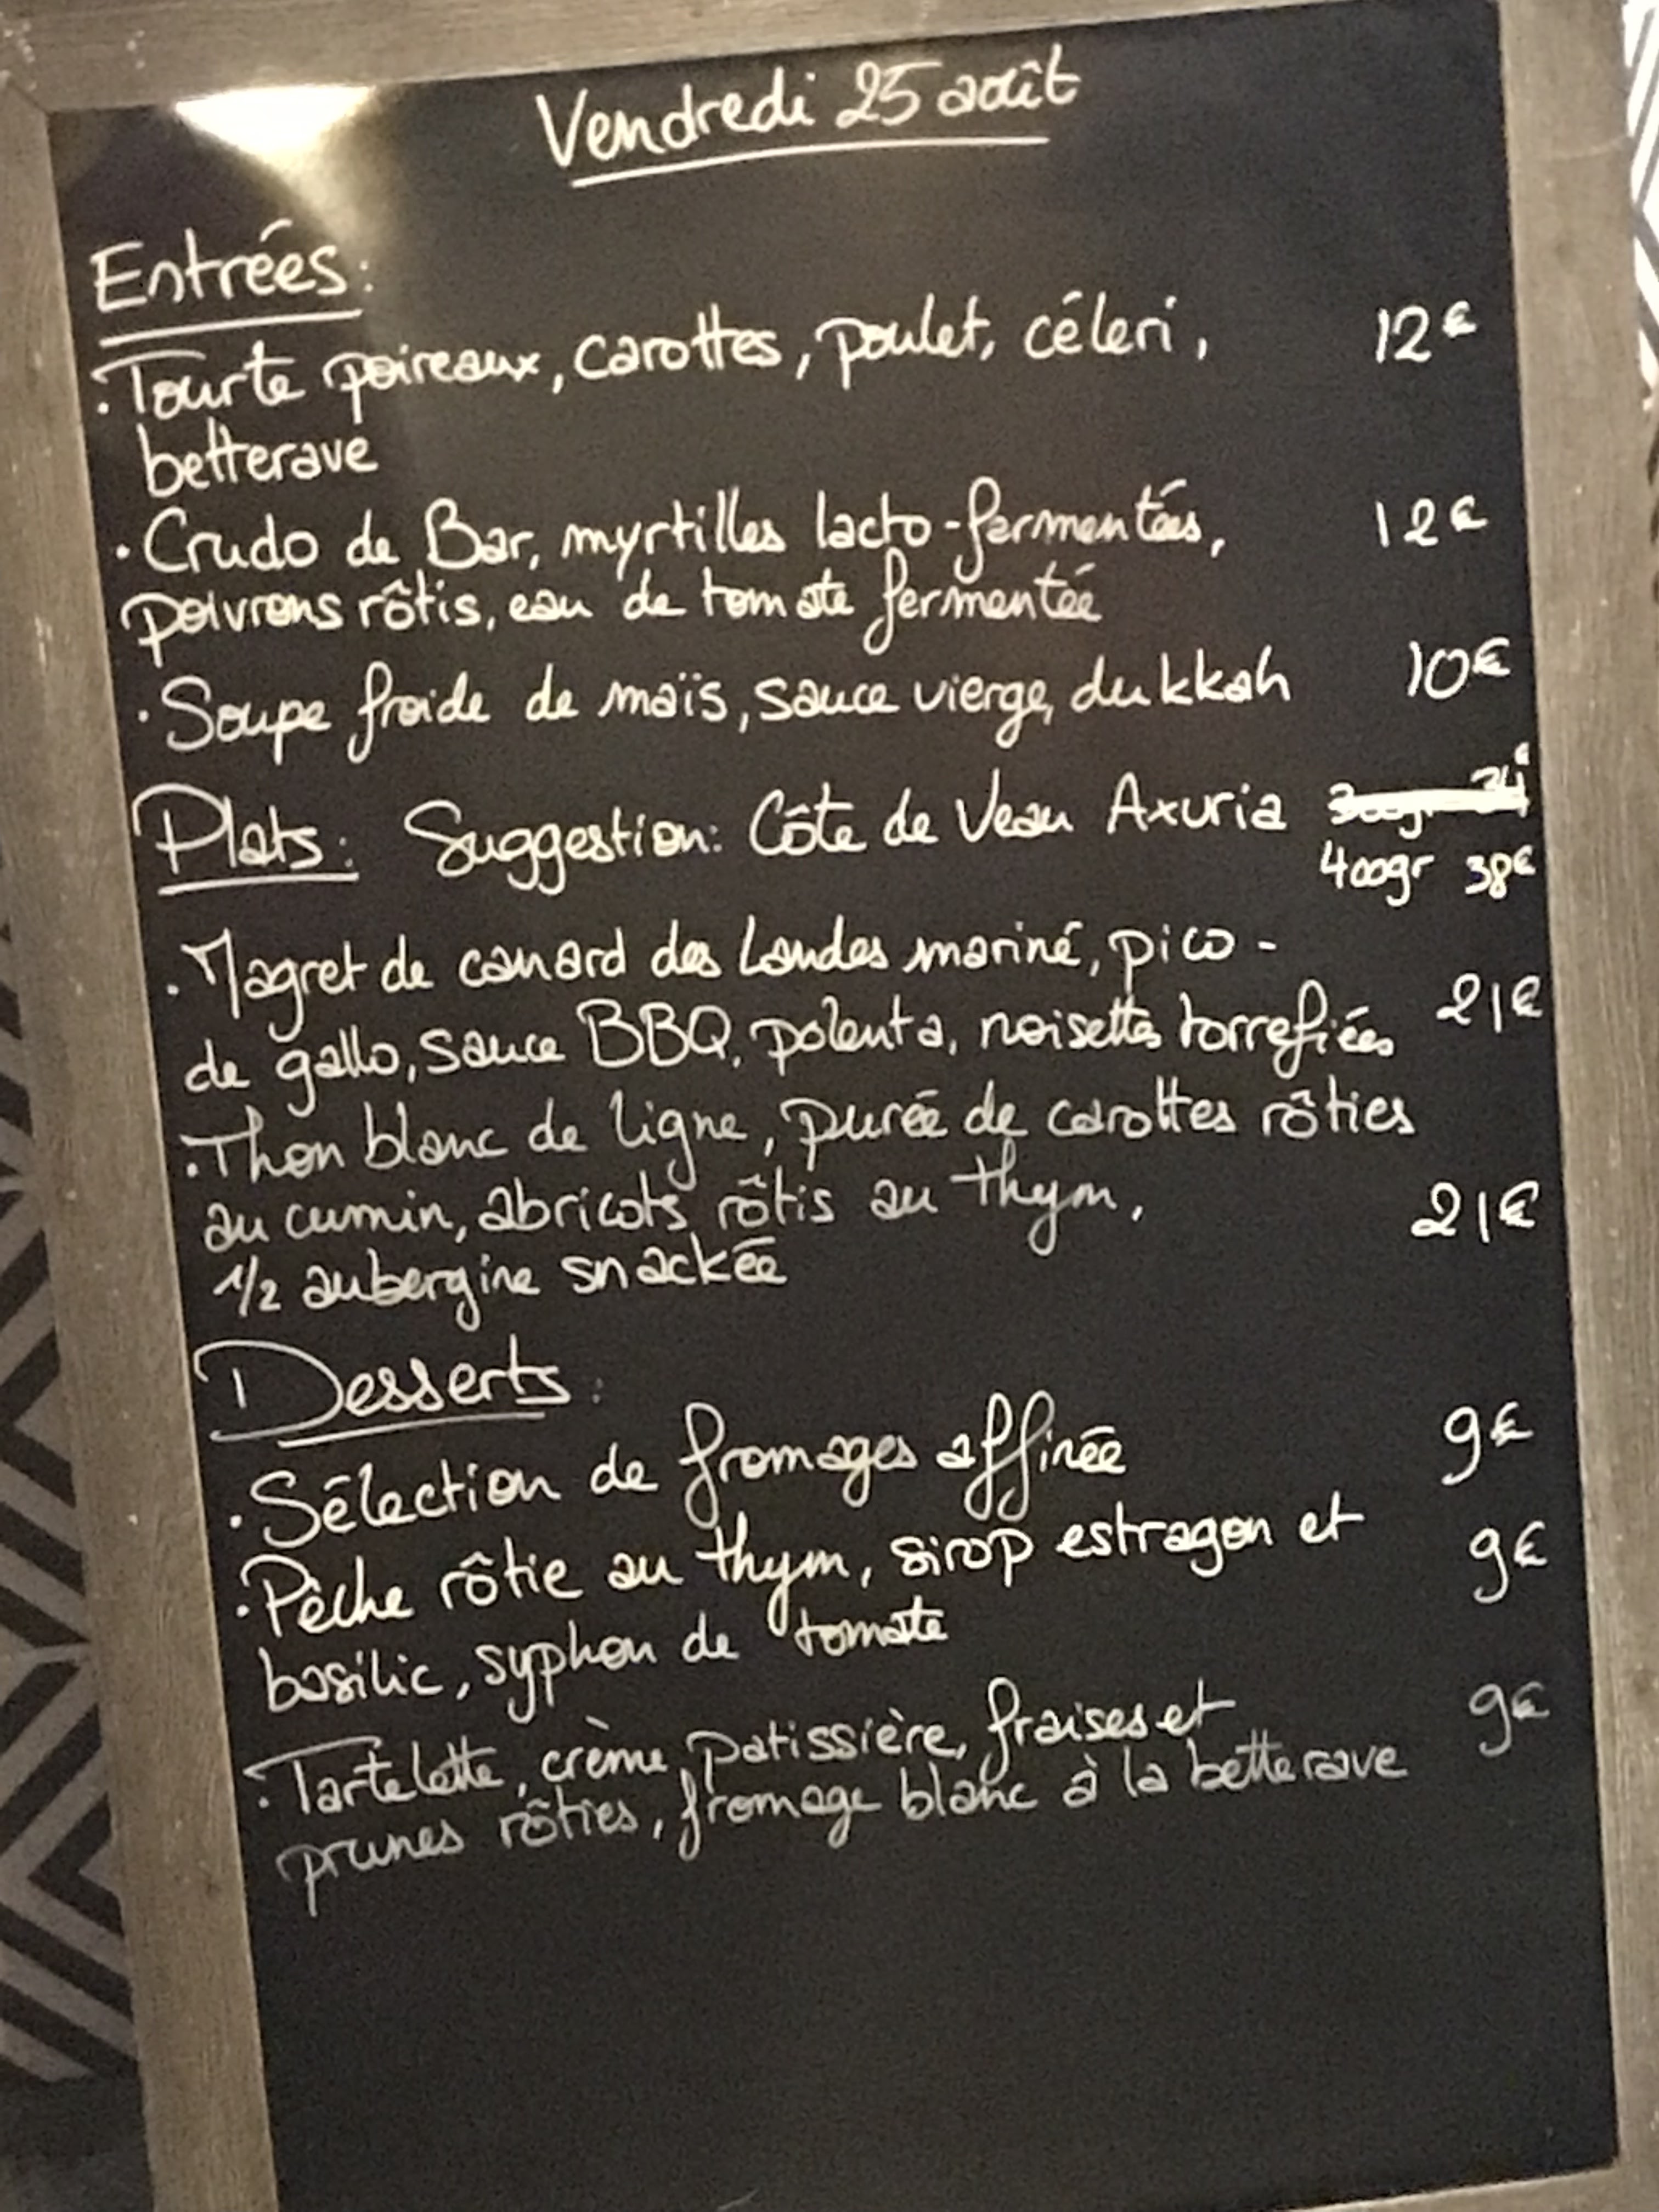 Vendredi 25 août
Entrées:
• Tourte poireaux, carottes, poulet, céleri, 12€
betterave
• Crudo de Bar, myrtilles lacto-fermentées, 12€
poivrons rôtis, eau de tomate fermentée
• Soupe froide de maïs, sauce vierge, dukkah 10€
Plats: Suggestion: Côte de Veau Axuria
400gr 38€
• Magret de canard des Landes mariné, pico-
de gallo, sauce BBQ, polenta, noisettes torrefiées 21€
• Thon blanc de ligne, purée de carottes rôties
au cumin, abricots rôtis au thym, 21€
1/2 aubergine snackée
Desserts:
• Sélection de fromages affinée 9€
• Pêche rôtie au thym, sirop estragon et 9€
basilic, syphon de tomate
• Tartelette, crème patissière, fraises et 9€
prunes rôties, fromage blanc à la betterave